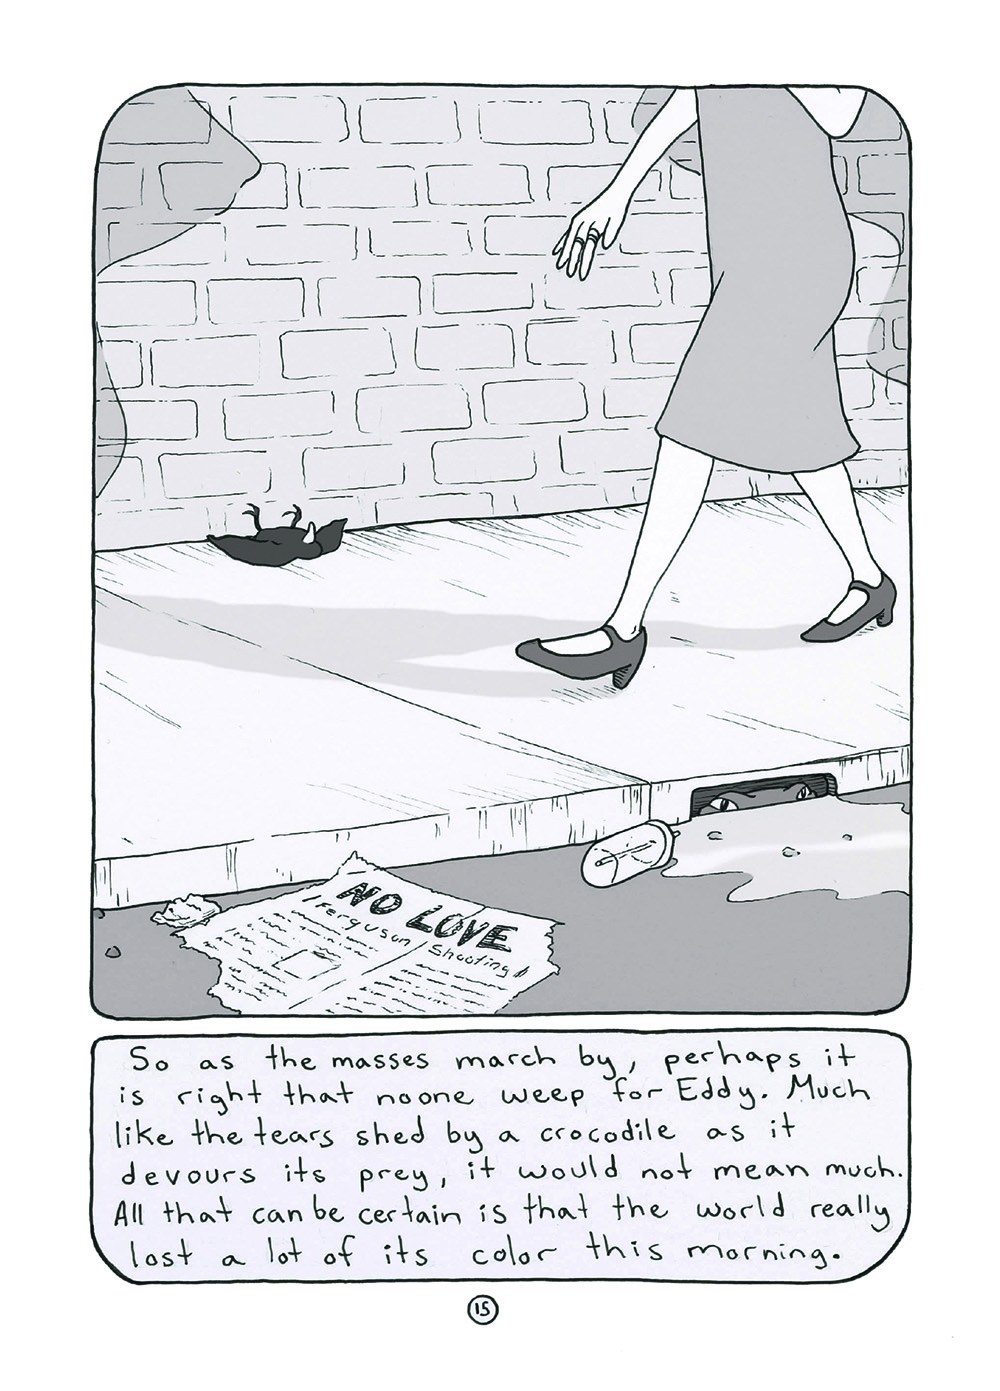 NO LOVE
Ferguson Shooting
So as the masses march by, perhaps it
is right that noone weep for Eddy. Much
like the tears shed by a crocodile as it
devours its prey, it would not mean much.
All that can be certain is that the world really
lost a lot of its color this morning.
15